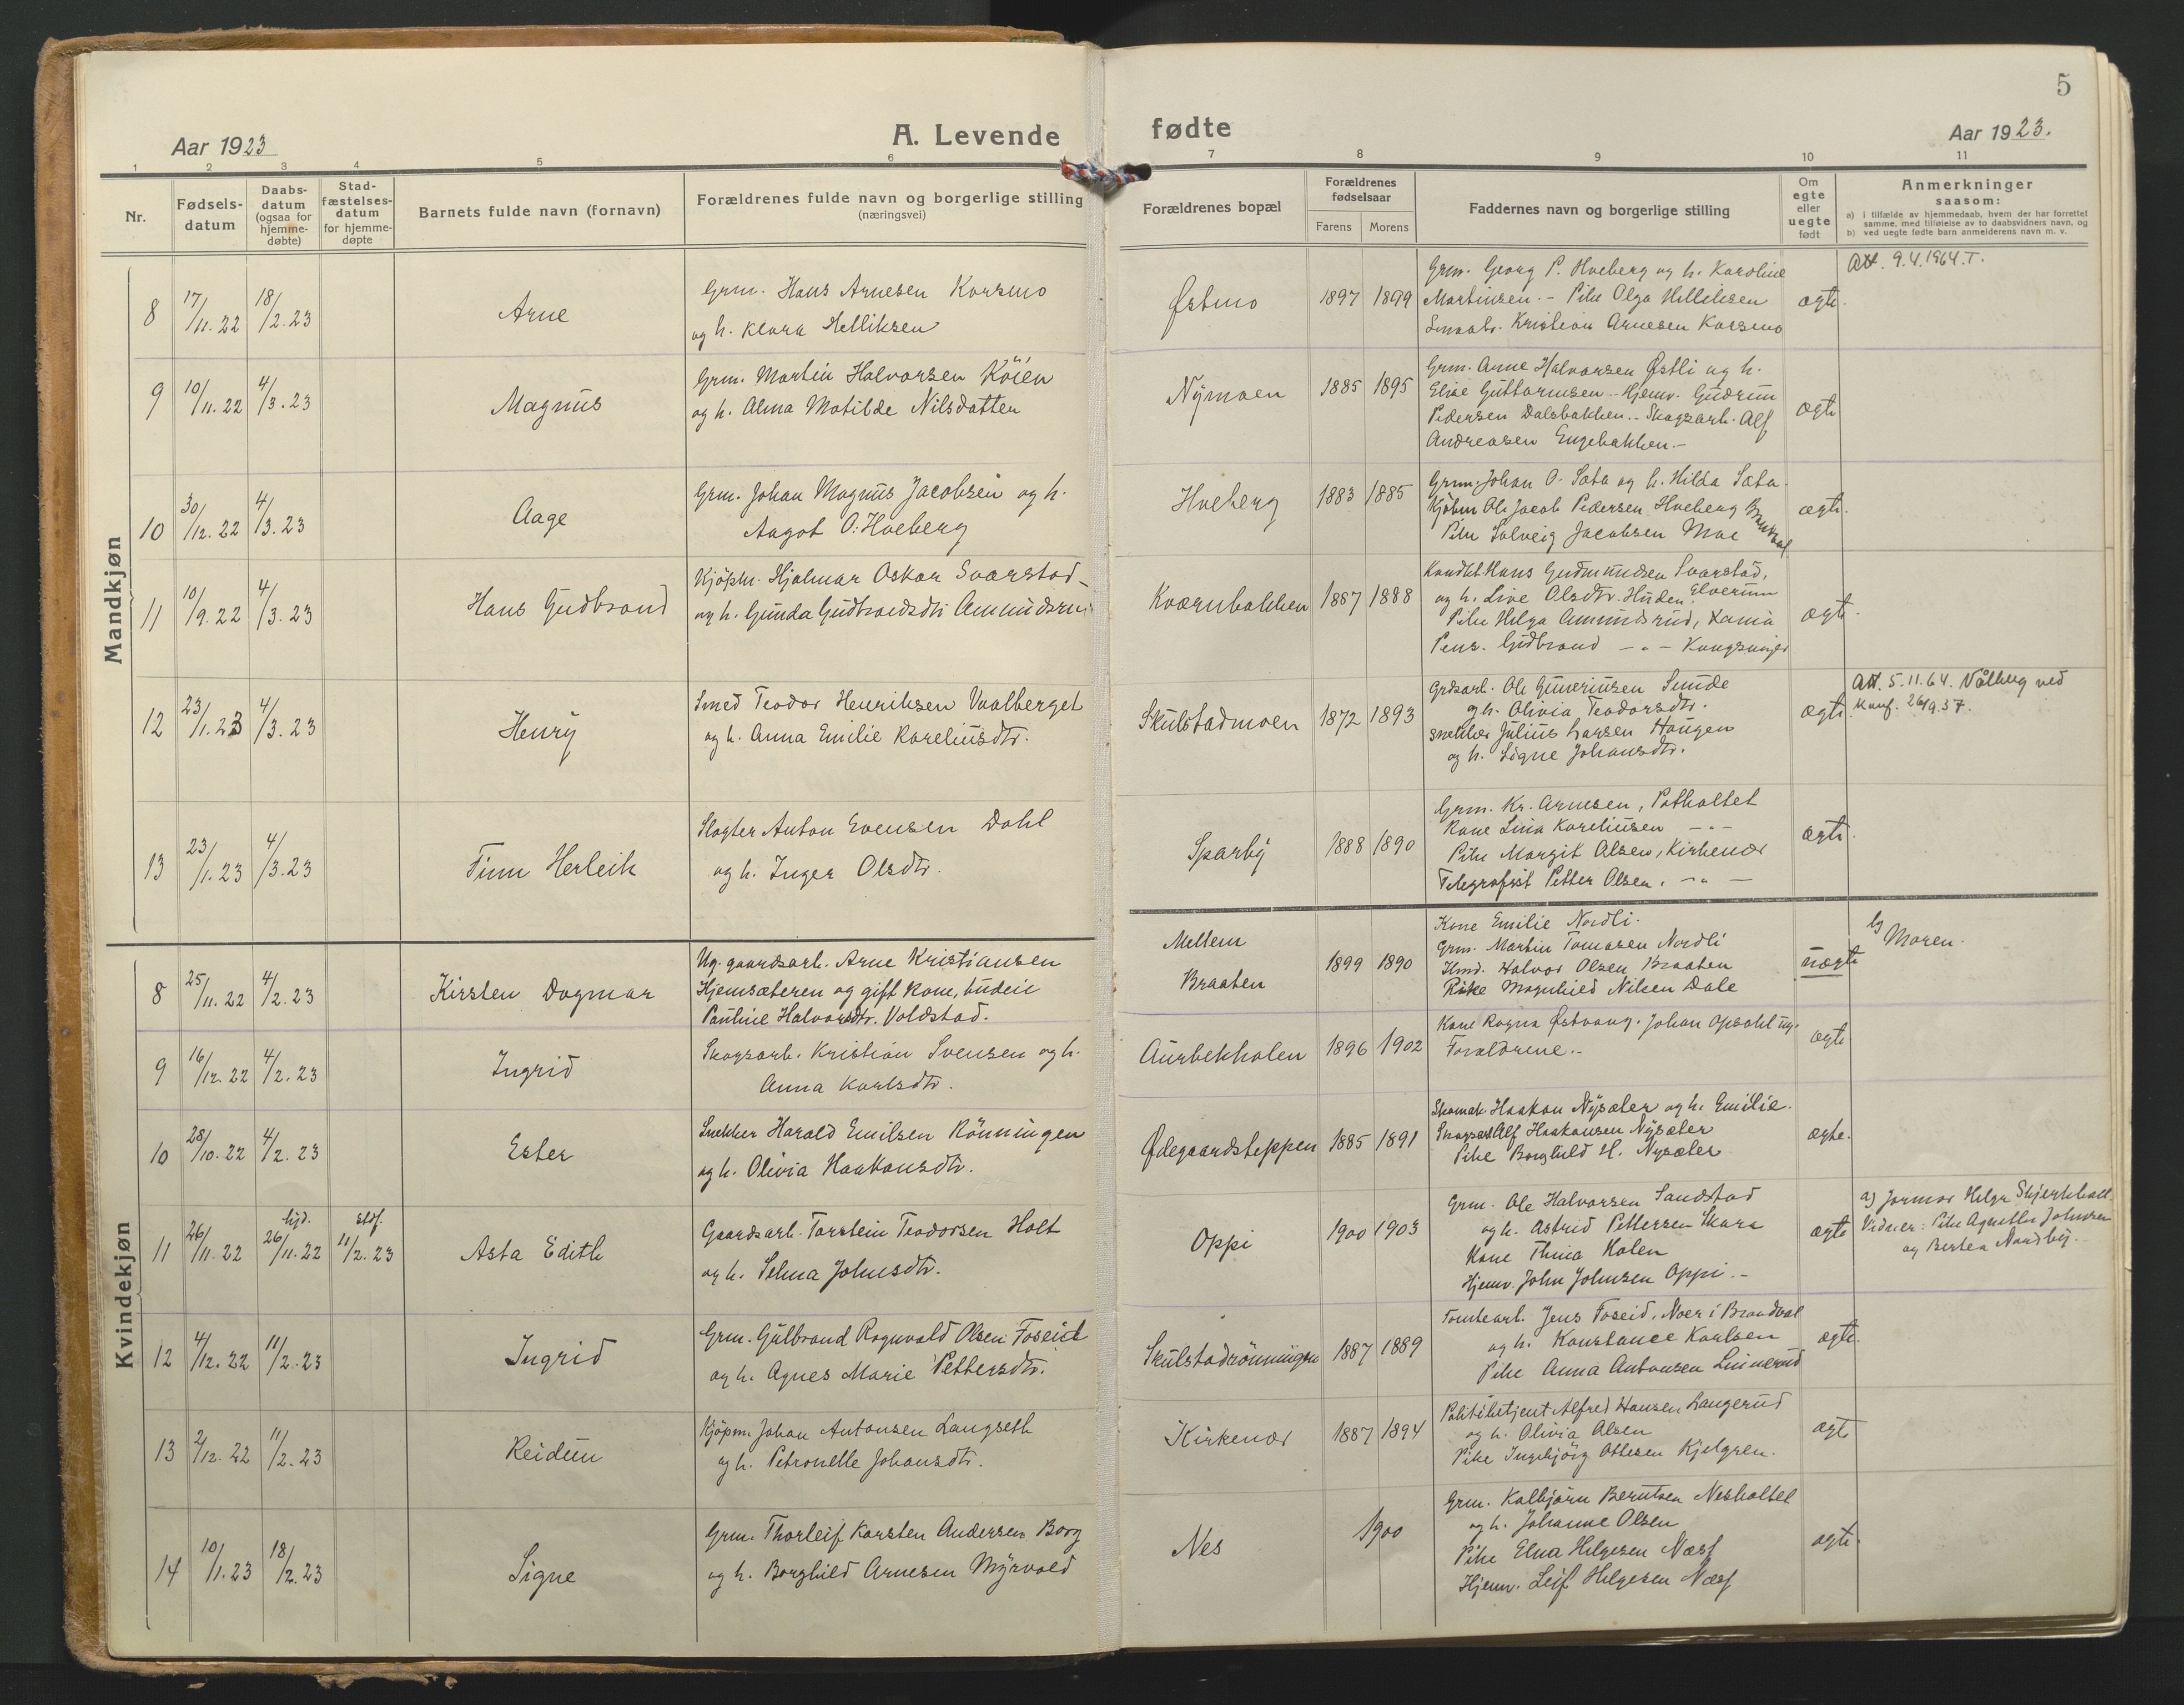 5
Aar 1923
A. Levende
fødte
Aar 1923.
1 2 3 4 5 6 7 8 9 10 11
Nr.
Fødsels-
datum
Daabs-
datum
(ogsaa for
hjemme-
døbte)
Stad-
fæstelses-
datum
for hjemme-
døpte
Barnets fulde navn (fornavn)
Forældrenes fulde navn og borgerlige stilling
(næringsvei)
Forældrenes bopæl
Forældrenes
fødselsaar
Farens Morens
Faddernes navn og borgerlige stilling
Om
egte
eller
uegte
født
Anmerkninger
saasom:
a) i tilfælde av hjemmedaab, hvem der har forrettet
samme, med tilføielse av to daabsvidners navn, og
b) ved uegte fødte barn anmelderens navn m. v.
Mandkjøn
8 17/11.22 18/2.23 Arne
Grm. Hans Arnesen Korsmo
og h. Klara Helliksen
Østmo 1897 1899
Grm. Georg P. Hveberg og h. Karoline
Martinsen. - Pike Olga Helliksen
Smaabr. Kristian Arnesen Korsmo
egte.
Att. 9.4.1964. T.
9 10/11.22 4/3.23 Magnus
Grm. Martin Halvorsen Köien
og h. Alma Matilde Nilsdatter
Nymoen 1885 1895
Grm. Arne Halvorsen Østli og h.
Elise Guttormsen - Hjemv. Gudrun
Pedersen Dalsbakken - Skogsarb. Alf
Andreasen Engebakken. -
egte
10 30/12.22 4/3.23 Aage
Grm. Johan Magnus Jacobsen og h.
Aagot O. Hveberg
Hveberg 1883 1885
Grm. Johan O. Sata og h. Hilda Sata
Kjöbm Ole Jacob Pedersen Hveberg
Pike Solveig Jacobsen Moe
egte.
11 10/9.22 4/3.23 Hans Gudbrand
Kjöpm. Hjalmar Oskar Svarstad
og h. Gunda Gudbrandsdtr Amundsru
Kværnbakken 1887 1888
Hans Gudmundsen Svarstad,
og h. Live Olsdtr. Elverum
Pike Helga Amundsrud,
Pens. Gudbrand - " - Kongsvinger
egte.
12 23/1.23 4/3.23 Henry
Smed Teodor Henriksen Vaalberget
og h. Anna Emilie Kareliusdtr.
Skulstadmoen 1872 1893
Grdsarb. Ole Guneriusen Sunde
og h. Olivia Teodorsdtr.
snekker Julius Larsen Haugen
og h. Signe Johansdtr.
egte.
Att. 5.11.64. Vålberg ved
Konf. 26/9.37.
13 23/1.23 4/3.23 Finn Herleik
Slagter Anton Evensen Dahl
og h. Inger Olsdtr.
Sparby 1888 1890
Grm. Kr. Arnesen, Potholtet
Kone Lina Kareliusen - " -
Pike Margit Olsen, Kirkenær
Telegrafist Petter Olsen. - " -
egte.
Kvindekjøn
8 25/11.22 4/2.23 Kirsten Dagmar
Ug. gaardsarb. Arne Kristiansen
Hjemsæteren og gift kone, budeie
Pauline Halvorsdtr. Voldstad.
Mellem
Braaten
1899 1890
Kone Emilie Nordli.
Grm. Martin Tomasen Nordli
Hmd. Halvor Olsen Braaten
Pike Magnhild Nilsen Dale
uegte
b) Moren.
9 16/12.22 4/2.23 Ingrid
Skogsarb. Kristian Svensen og h.
Anna Karlsdtr.
Aurbekkolen 1896 1902
Kone Ragna Østvang. Johan Opsahl ug.
Forældrene. -
egte
10 28/10.22 4/2.23 Ester
Snekker Harald Emilsen Rönningen
og h. Olivia Haakonsdtr.
Ødegaardsteppen 1885 1891
Skomak. Haakon Nysæter og h. Emilie.
Skogsarb Alf Haakonsen Nysæter
Pike Borghild H. Nysæter
egte.
11 26/11.22 hjd. 26/11.22 stdf. 11/2.23 Asta Edith
Gaardsarb. Torstein Teodorsen Holt
og h. Selma Johnsdtr.
Oppi 1900 1903
Grm. Ole Halvorsen Sandstad
og h. Astrid Pettersen Skara
Kone Thina Holen
Hjemv. John Johnsen Oppi. -
egte
a) Jormor Helga
Vidner: Pike Agnethe Johnsen
og Bertea Nordby.
12 4/12.22 11/2.23 Ingrid
Grm. Gulbrand Ragnvald Olsen Foseid
og h. Agnes Marie Pettersdtr.
Skulstadrönningen 1887 1889
Tomtearb. Jens Foseid, Noer i Brandval
og h. Konstance Karlsen
Pike Anna Antonsen Linnerud
egte.
13 2/12.22 11/2.23 Reidun
Kjöpm. Johan Antonsen Langseth
og h. Petronelle Johansdtr.
Kirkenær 1887 1894
Politibetjent Alfred Hansen Langerud
og h. Olivia Olsen
Pike Ingebjörg Ottesen Kjelgren.
egte
14 10/1.23 18/2.23 Signe
Grm. Thorleif Karsten Andersen Borg
og h. Borghild Arnesen Myrvold
Nes 1900
Grm. Kolbjörn Berntsen Nesholtet
og h. Johanne Olsen
Pike Elna Helgesen Næss
Hjemv. Leif Helgesen Næss
egte.